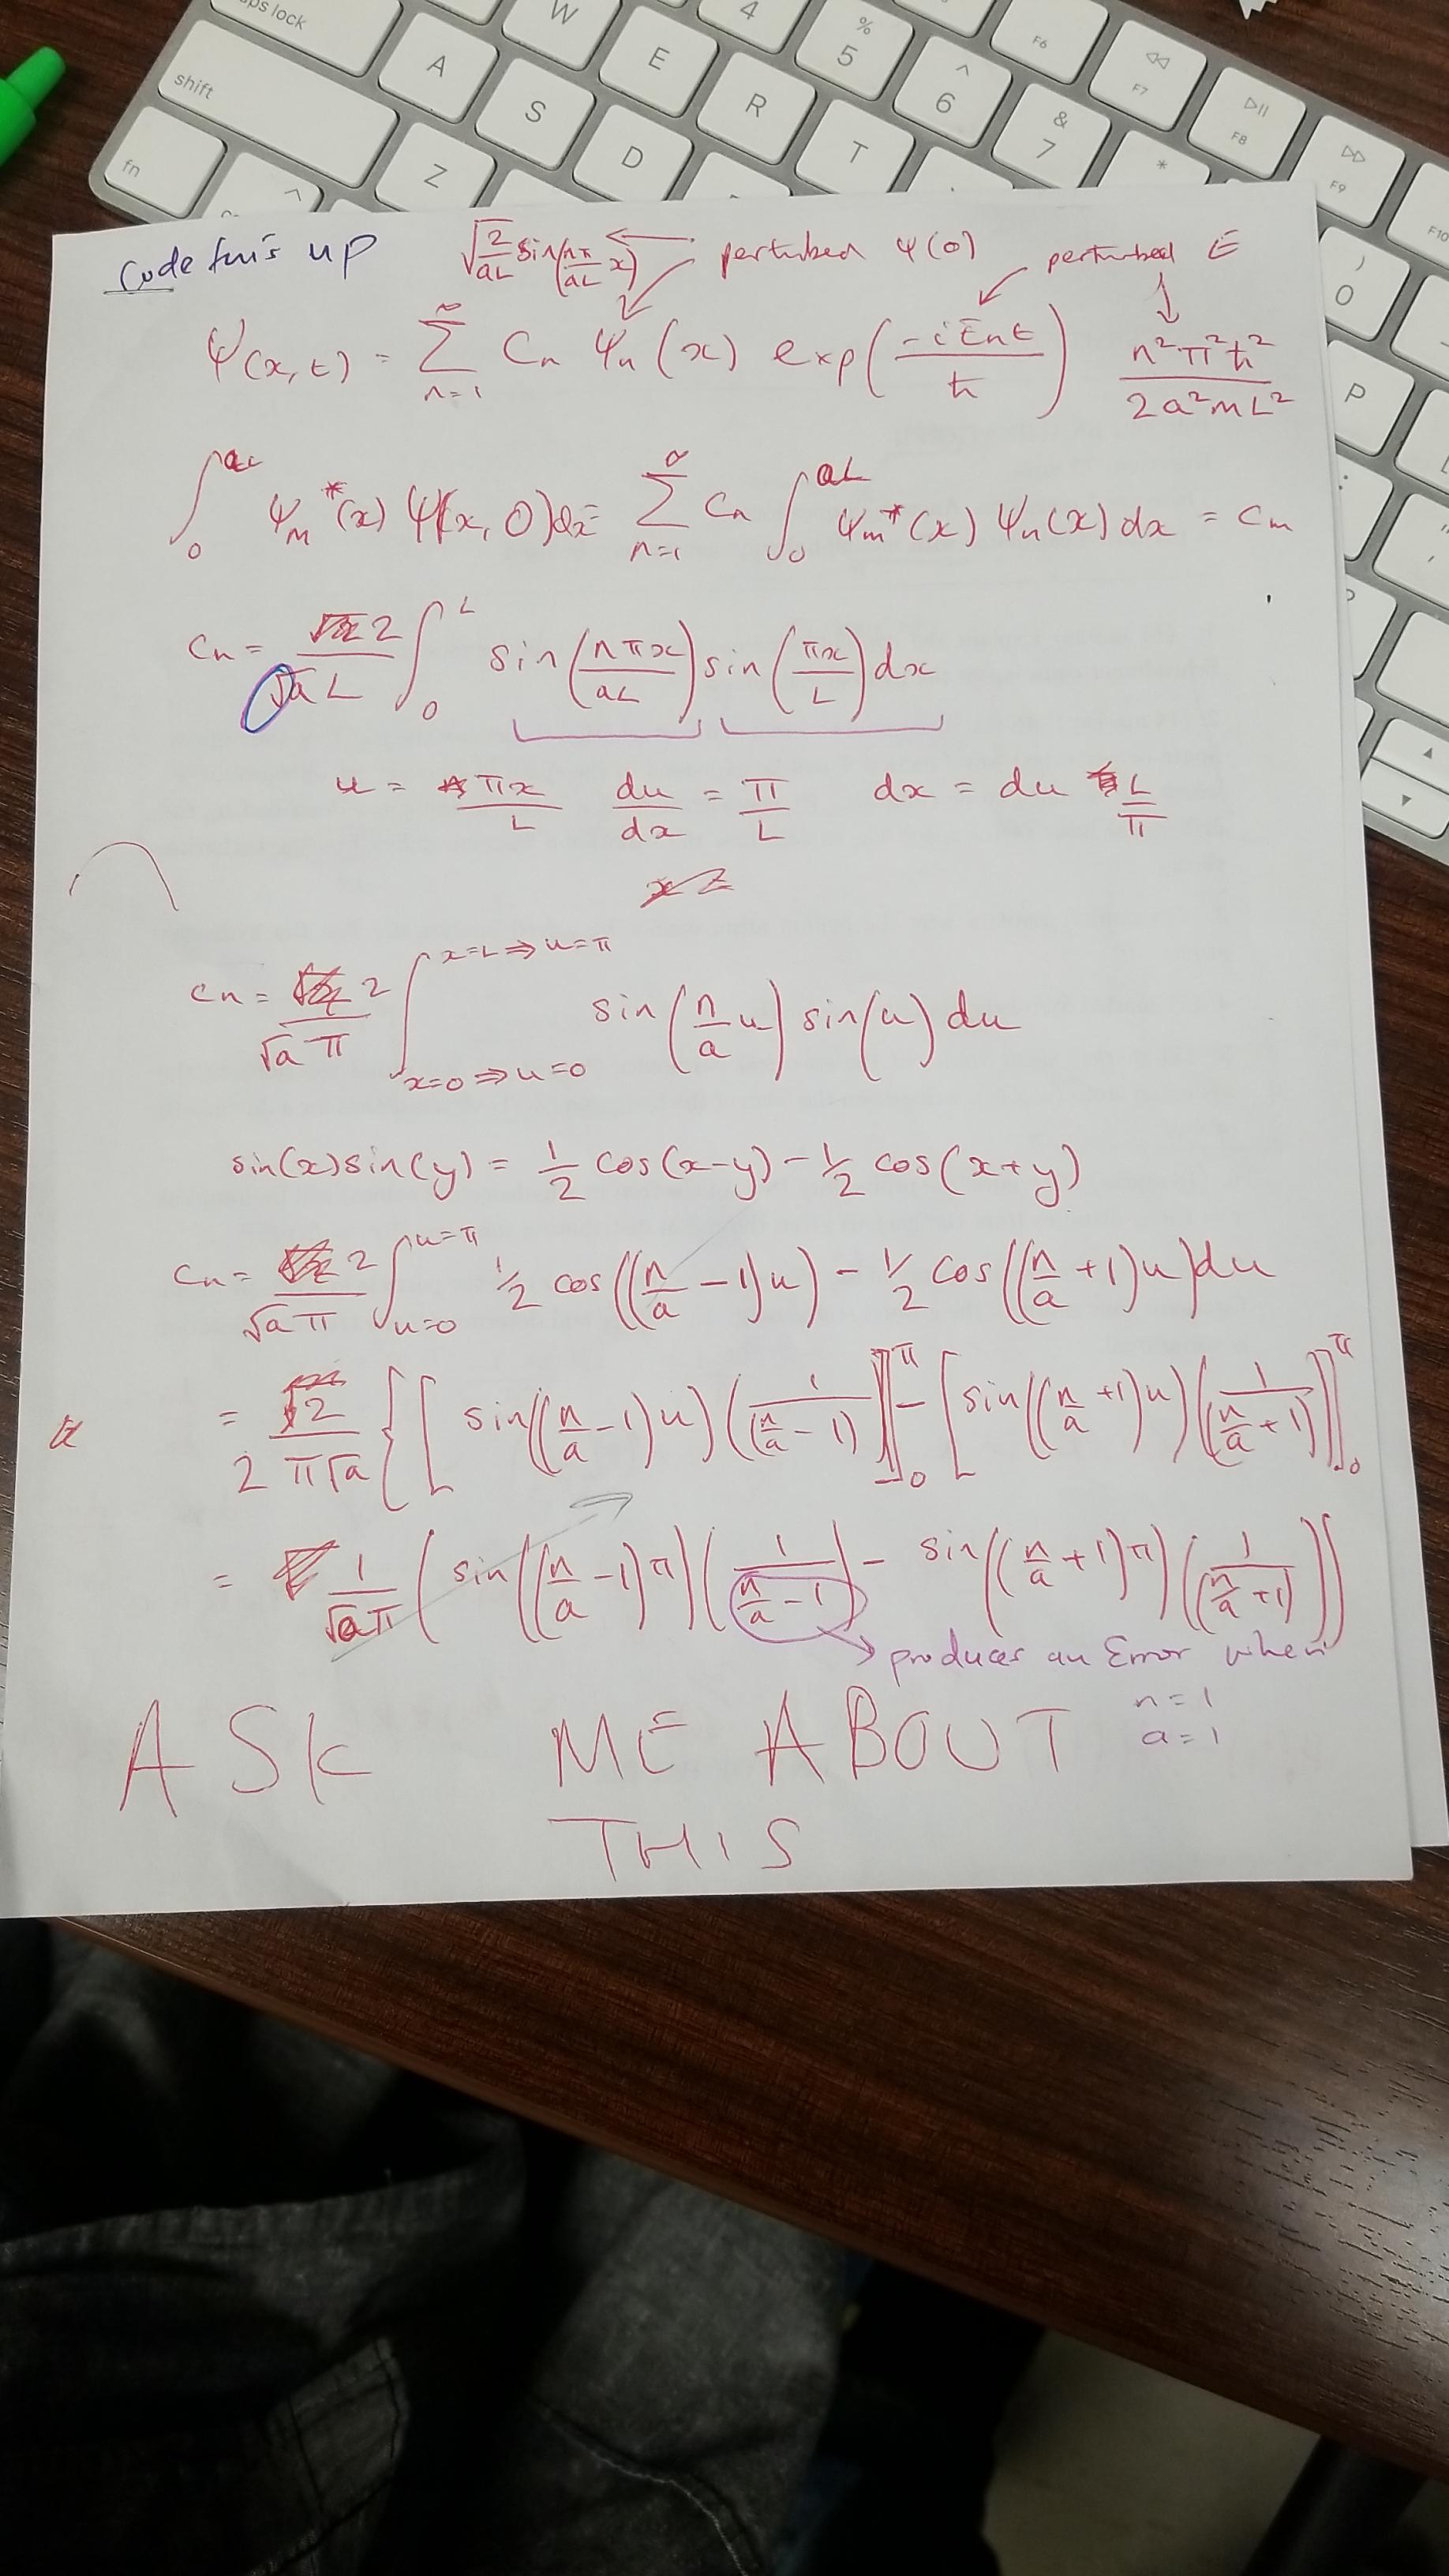 ps lock W 4 % 5 F6 F7 F8 F9 F10
shift A E ^ 6 & 7 ) 0
fn S R T * P
Z D
Code this up
√(2/aL) sin(nπ/aL x) ← perturbed ψ(0) perturbed E
Ψ(x,t) = ∑_{n=1}^{∞} Cn ψn(x) exp(-iEnt/ħ) n²π²ħ²/2a²mL²
∫_0^{aL} ψm*(x) Ψ(x,0)dx = ∑_{n=1}^{∞} Cn ∫_0^{aL} ψm*(x) ψn(x) dx = Cm
Cn = 2/√a L ∫_0^L sin(nπx/aL) sin(πx/L) dx
u = πx/L du/dx = π/L dx = du L/π
Cn = 2/√a π ∫_{x=0⇒u=0}^{x=L⇒u=π} sin(n/a u) sin(u) du
sin(x)sin(y) = 1/2 cos(x-y) - 1/2 cos(x+y)
Cn = 2/√a π ∫_{u=0}^{u=π} 1/2 cos((n/a - 1)u) - 1/2 cos((n/a + 1)u)du
= 2/2π√a {[sin((n/a - 1)u)(1/(n/a - 1))]_0^π - [sin((n/a + 1)u)(1/(n/a + 1))]_0^π
= 1/√a π (sin((n/a - 1)π)(1/(n/a - 1)) - sin((n/a + 1)π)(1/(n/a + 1)))
→ produces an Error when
n = 1
a = 1
ASK ME ABOUT
THIS